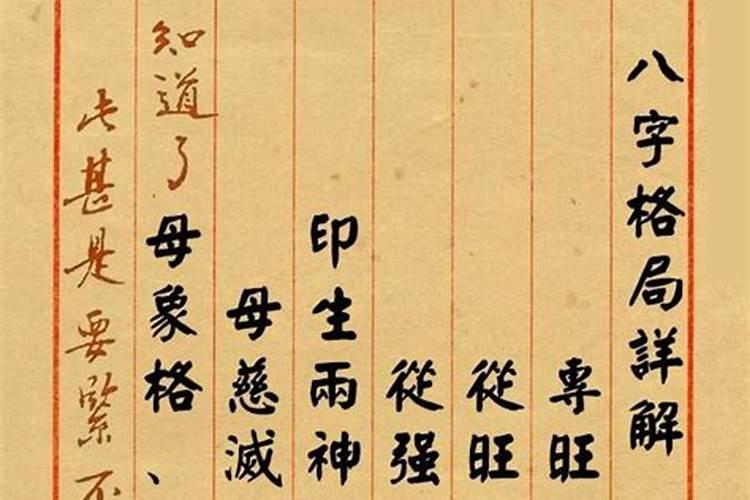 八字格局詳解
專旺
從旺
從强
印生兩神
母慈滅
母象格、
知道了
此甚是要緊不